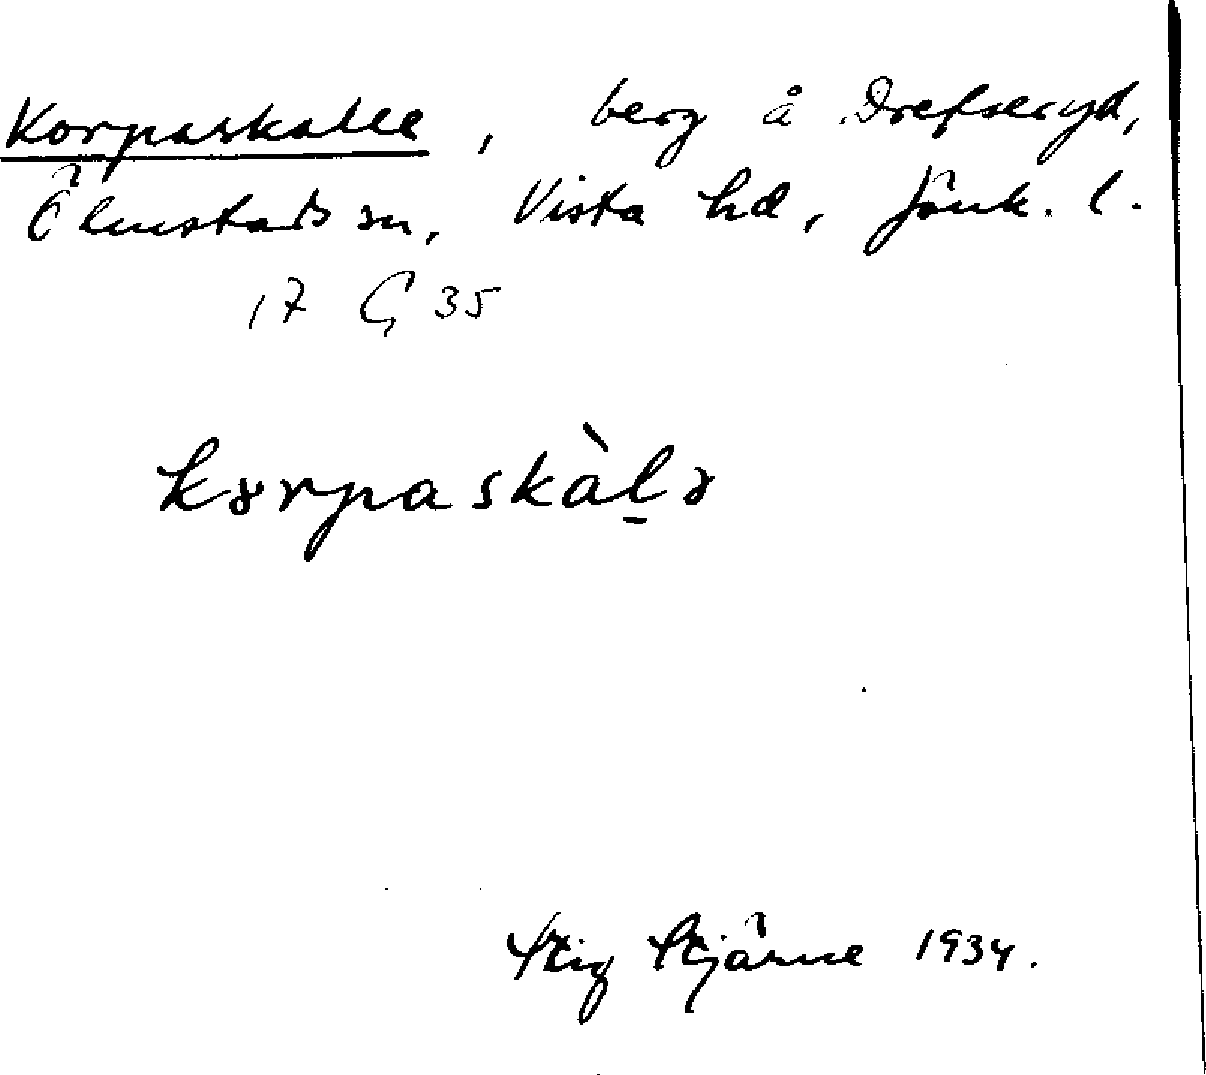 Korpaskalle, berg å Drefseryd,
Ölmstads sn, Vista hd, Jönk. l.
17 Ç 35
kɤrpaskàl̠ɤ
Stig Stjärne 1934.